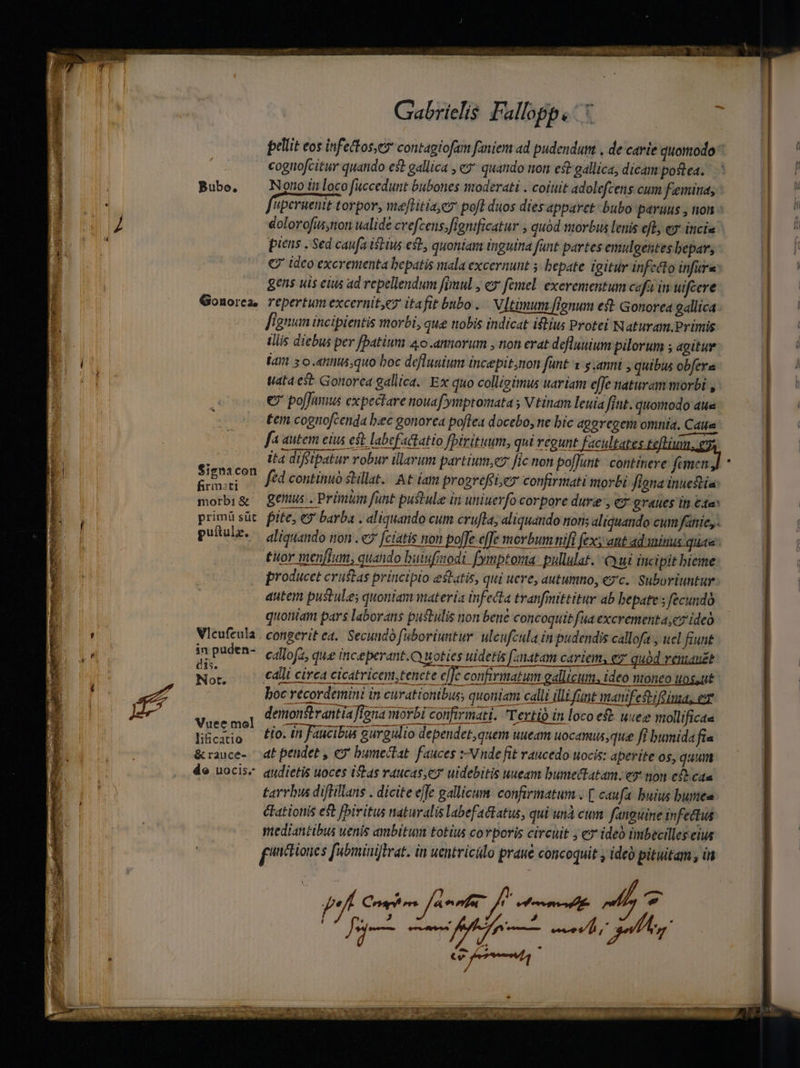 Gabrielis Fallopp.
pellit eos infectos,& contagiosam saniem ad pudendum . de carie quomodo
cognoscitur quando est gallica , & quando non est gallica, dicam postea.
Bubo.
Nono in loco succedunt bubones moderati . coiuit adolescens cum fœmina,
superuenit torpor, mæstitia,& post duos dies apparet bubo paruus , non
dolorosus,non ualide crescens,significatur , quòd morbus lenis est, & inci=
piens . Sed causa istius est, quoniam inguina sunt partes emulgentes hepar,
& ideo excrementa hepatis mala excernunt ; hepate igitur infecto insur=
gens uis eius ad repellendum simul , & semel excrementum casu in uiscere
Gonorea.
repertum excernit,& ita fit bubo . Vltimum signum est Gonorea gallica
signum incipientis morbi, quæ nobis indicat istius Protei Naturam.Primis
illis diebus per spatium 40.annorum , non erat defluuium pilorum ; agitur
iam 30.annus,quo hoc defluuium incœpit,non sunt 15.anni , quibus obser=
uata est Gonorea gallica. Ex quo colligimus uariam esse naturam morbi ,
& possumus expectare noua symptomata ; Vtinam leuia sint. quomodo au=
tem cognoscenda hæc gonorea postea docebo, ne hic aggregem omnia. Cau=
sa autem eius est labefactatio spirituum, qui regunt facultates testium, &
ita dissipatur robur illarum partium,& sic non possunt continere semen,
Signa con
firmati
morbi &
primũ sũt
pustulæ.
sed continuò stillat. At iam progressi,& confirmati morbi signa inuestia=
gemus . Primùm sunt pustulæ in uniuerso corpore duræ , & graues in ca=
pite, & barba . aliquando cum crusta, aliquando non; aliquando cum sanie,
aliquando non . & sciatis non posse esse morbum nisi sex, aut ad minus qua=
tuor mensium, quando huiusmodi symptoma pullulat. Qui incipit hieme
producet crustas principio æstatis, qui uere, autumno, &c. Suboriuntur
autem pustulæ; quoniam materia infecta transmittitur ab hepate ; secundò
quoniam pars laborans pustulis non bene concoquit sua excrementa,& ideò
Vlcuscula
in puden-
dis.
Not.
congerit ea. Secundò suboriuntur ulcuscula in pudendis callosa , uel fiunt
callosa, quæ inceperant. Quoties uidetis sanatam cariem, & quòd remanet
calli circa cicatricem,tenete esse confirmatum gallicum, ideo moneo uos,ut
hoc recordemini in curationibus, quoniam calli illi sunt manifestissima, &
Vueæ mol
lificatio
& rauce-
do uocis.
demonstrantia signa morbi confirmati. Tertiò in loco est uueæ mollifica=
tio. in faucibus gurgulio dependet,quem uueam uocamus,quæ si humida fi=
at pendet , & humectat fauces : Vnde fit raucedo uocis: aperite os, quum
audietis uoces istas raucas,& uidebitis uueam humectatam. & non est ca=
tarrhus distillans . dicite esse gallicum confirmatum . [ causa huius hume=
ctationis est spiritus naturalis labefactatus, qui unà cum sanguine infectus
mediantibus uenis ambitum totius corporis circuit , & ideò imbecilles eius
functiones subministrat. in uentriculo praue concoquit , ideò pituitam , in
post